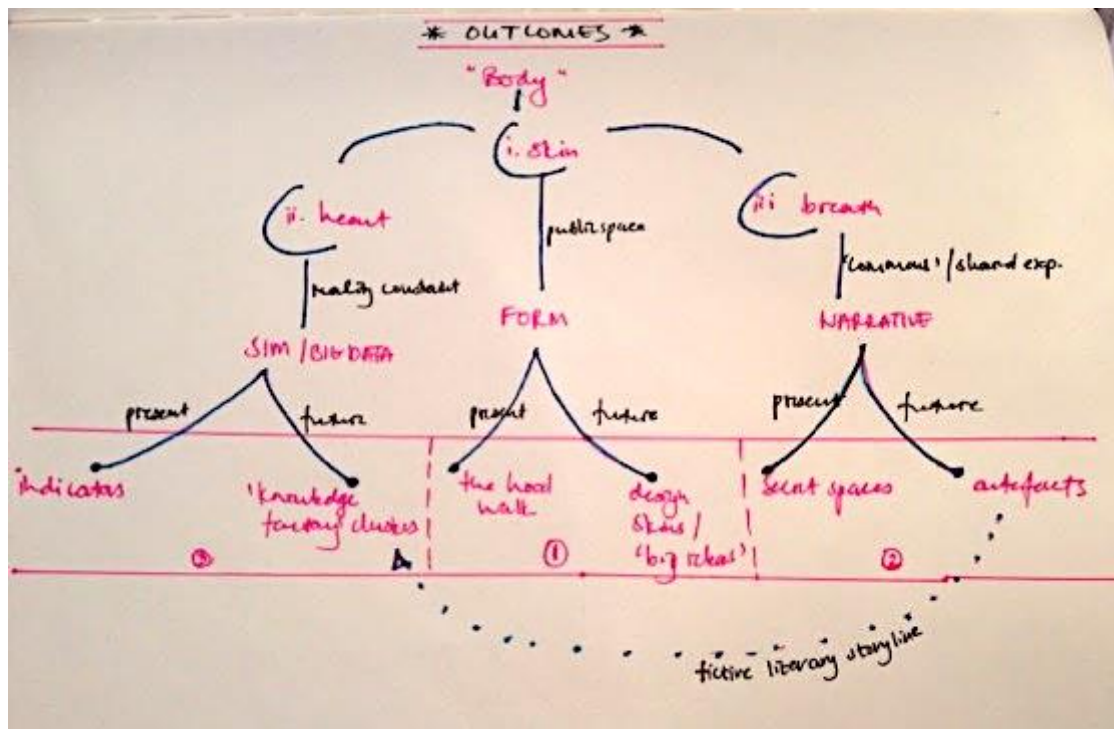 * OUTCOMES *
"Body"
i. skin
ii. heart
iii breath
public space
reality constant
'commons' / shared exp.
FORM
NARRATIVE
SIM / BIG DATA
present
future
present
future
present
future
indicators
'knowledge
factory' clusters
the hood
walk
design
skins /
'big ideas'
secret spaces
artefacts
③
①
②
fictive literary storyline